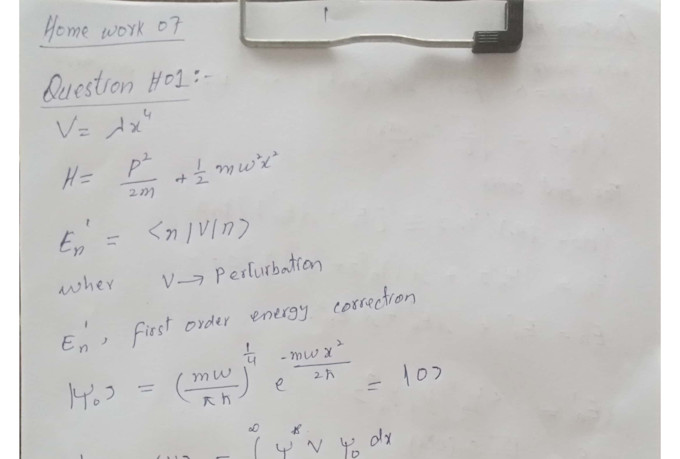 Home work 07
Question #01:-
V = λx⁴
H = P²/2m + 1/2 mω²x²
Eₙ' = <n|V|n>
wher V → Perturbation
Eₙ', first order energy correction
|ψ₀> = (mω/πħ)^1/4 e^-mωx²/2ħ = |0>
∞ ∫ ψ* V ψ₀ dx